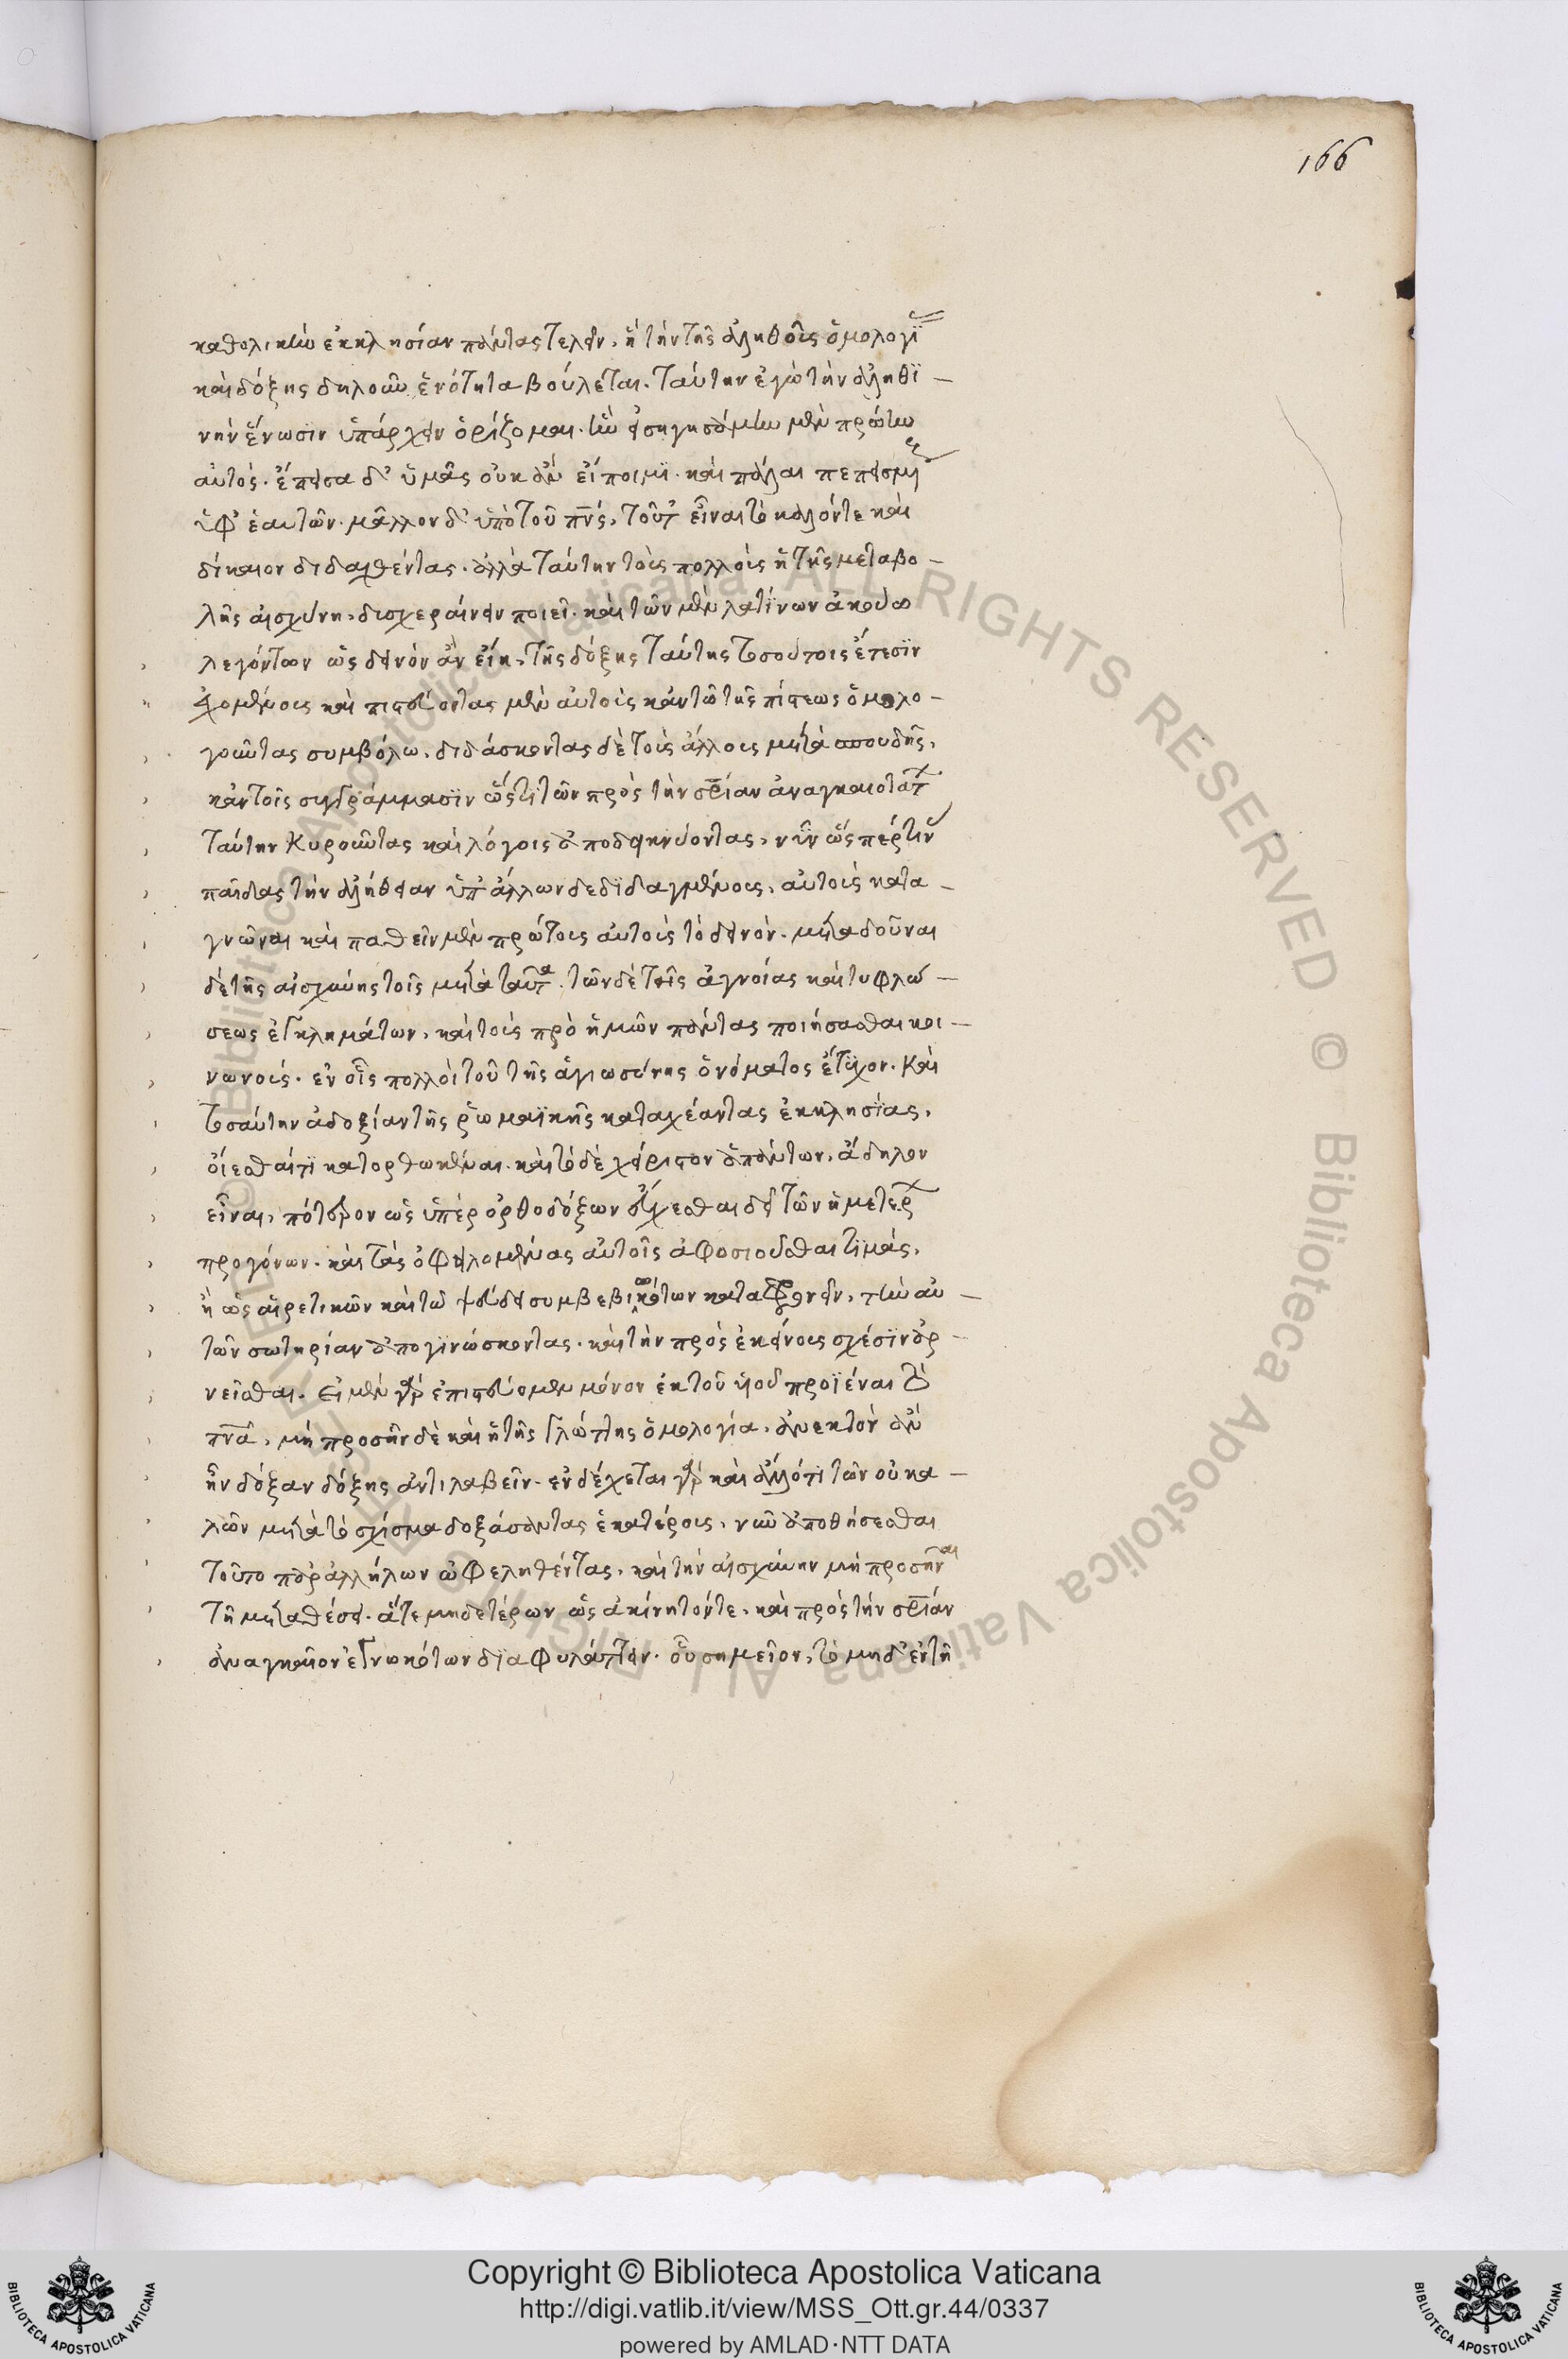 166
καθολικὴν ἐκκλησίαν πάντας τελεῖν, ἢ τὴν τῆς ἀληθοῦς ὁμολογί
καὶ δόξης δηλοῦν ἑνότητα βούλεται. ταύτην ἐγὼ τὴν ἀληθι –
νὴν ἕνωσιν ὑπάρχειν ὁρίζομαι. ἣν εἰσηγησάμην μὲν πρώτην
αὐτός. ἔπεισα δ' ὑμᾶς οὐκ ἂν εἴποιμι. καὶ πάλαι πεπεισμέ
ὑφ' ἑαυτῶν. μᾶλλον δ' ὑπὸ τοῦ πνς, τοῦτ εἶναι τὸ καλόν τε καὶ
δίκαιον διδαχθέντας. ἀλλὰ ταύτην τοὺς πολλοὺς ἡ τῆς μεταβο –
λῆς αἰσχύνη, δυσχεραίνειν ποιεῖ. καὶ τῶν μὲν λατίνων ἀκούω
λεγόντων ὡς δεινὸν ἂν εἴη, τῆς δόξης ταύτης τοσούτοις ἔτεσιν
ἐχομένους καὶ πιστεύοντας μὲν αὐτοὺς κἀν τῶ τῆς πίστεως ὁμολο –
γοῦντας συμβόλω, διδάσκοντας δὲ τοὺς ἄλλους μετὰ σπουδῆς,
κἀν τοῖς συγγράμμασιν ὥς τι τῶν πρὸς τὴν σρίαν ἀναγκαιοτάτ
ταύτην κυροῦντας καὶ λόγοις ἀποδεικνύοντας, νῦν ὥσπέρ τιν
παῖδας τὴν ἀλήθειαν ὑπ' ἄλλων δεδιδαγμένους, αὐτοὺς κατα –
γνῶναι καὶ παθεῖν μὲν πρώτους αὐτοὺς τὸ δεινὸν. μεταδοῦναι
δὲ τῆς αἰσχύνης τοῖς μετὰ ταῦτα. τῶν δὲ τῆς ἀγνοίας καὶ τυφλώ –
σεως ἐγκλημάτων, καὶ τοὺς πρὸ ἡμῶν πάντας ποιήσασθαι κοι –
νωνούς. ἐν οἷς πολλοὶ τοῦ τῆς ἁγιωσύνης ὀνόματος ἔτυχον. καὶ
τοσαύτην ἀδοξίαν τῆς ῥωμαϊκῆς καταχέαντας ἐκκλησίας,
οἴεσθαί τι κατορθωκέναι. καὶ τὸ δὲ χείριστον ἁπάντων, ἄδηλον
εἶναι, πότερον ὡς ὑπὲρ ὀρθοδόξων εὔχεσθαι δεῖ τῶν ἡμετέρ
προγόνων. καὶ τὰς ὀφειλομένας αὐτοῖς ἀφοσιοῦσθαι τιμάς,
ἢ ὡς αἱρετικῶν καὶ τῶ ψεύδει συμβεβιωκότων καταφρονεῖν, τὴν αὐ –
τῶν σωτηρίαν ἀπογινώσκοντας. καὶ τὴν πρὸς ἐκείνους σχέσιν ἀρ –
νεῖσθαι. εἰ μὲν γὰρ ἐπιστεύομεν μόνον ἐκ τοῦ υἱοῦ προϊέναι τὸ
πνᾶ, μὴ προσῆν δὲ καὶ ἡ τῆς γλώττης ὁμολογία, ἀνεκτὸν ἂν
ἦν δόξαν δόξης ἀντιλαβεῖν. ἐνδέχεται γὰρ καὶ ἄλλό τι τῶν οὐ κα –
λῶν μετὰ τὸ σχίσμα δοξάσαντας ἑκατέρους, νῦν ἀποθήσεσθαι
τοῦτο παρ' ἀλλήλων ὠφεληθέντας, καὶ τὴν αἰσχύνην μὴ προσῆναι
τῆ μεταθέσει. ἅτε μηδετέρων ὡς ἀκίνητόν τε, καὶ πρὸς τὴν σρίαν
ἀναγκαῖον ἐγνωκότων διαφυλάττειν. οὗ σημεῖον, τὸ μηδ' ἐν τῆ
Copyright © Biblioteca Apostolica Vaticana
http://digi.vatlib.it/view/MSS_Ott.gr.44/0337
powered by AMLAD·NTT DATA